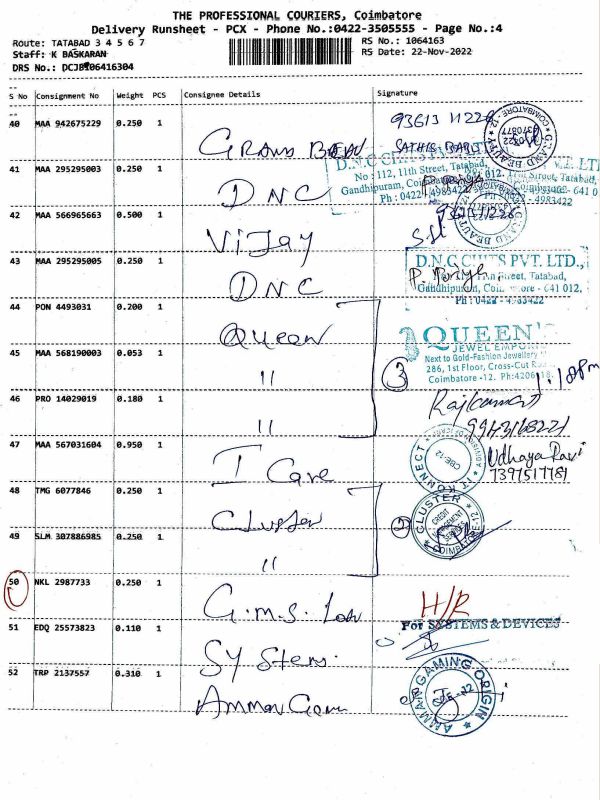 THE PROFESSIONAL COURIERS, Coimbatore
Delivery Runsheet - PCX - Phone No.:0422-3505555 - Page No.:4
Route: TATABAD 3 4 5 6 7
RS No.: 1064163
Staff: K BASKARAN
RS Date: 22-Nov-2022
DRS No.:
S No Consignment No Weight PCS Consignee Details Signature
40 MAA 942675229 0.250 1
93613 11228
GRAND
41 MAA 295295003 0.250 1
No : 112, 11th Street, Tatabad,
DNC
42 MAA 566965663 0.500 1
Vijay
43 MAA 295295005 0.250 1
D.N.C CHITS PVT. LTD.,
P. Priya
Gandhipuram, Coimbatore - 641 012.
Ph : 0422 - 4983422
DNC
44 PON 4493031 0.200 1
Queen
QUEEN'S
JEWEL EMPORIUM
Next to Gold-Fashion Jewellery
286, 1st Floor, Cross-Cut Road
Coimbatore -12.
45 MAA 568190003 0.053 1
"
3
46 PRO 14029019 0.180 1
"
Rajkumar
9943168221
47 MAA 567031604 0.950 1
I Care
IT KONNECT
CBE-12
Udhaya Ravi
7397517781
48 TMG 6077846 0.250 1
Cluster
CLUSTER
CREDIT MANAGEMENT SERVICES
COIMBATORE-12
2
49 SLM 307886985 0.250 1
"
50 NKL 2987733 0.250 1
G.M.S. Law
H/R
51 EDQ 25573823 0.110 1
For SYSTEMS & DEVICES
System
52 TRP 2137557 0.310 1
AMMAN GAMING ORIGIN
Amman Gam